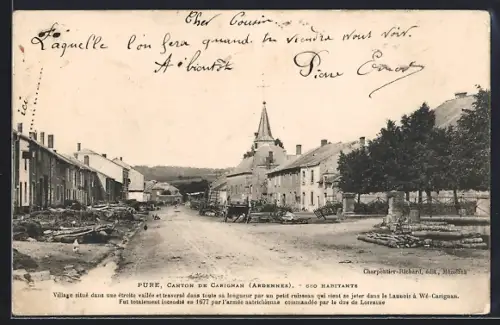 Cher Cousin
Laquelle l'on fera quand on viendra vous voir.
A bientôt
Pierre Ernest
ici
PURE, CANTON DE CARIGNAN (ARDENNES). - 600 HABITANTS
Charpentier-Richard, édit.,
Village situé dans une étroite vallée et traversé dans toute sa longueur par un petit ruisseau qui vient se jeter dans le Lannoir à Wé-Carignan.
Fut totalement incendié en 1677 par l'armée autrichienne commandée par le duc de Lorraine